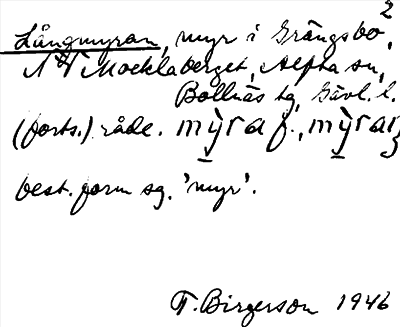 Långmyran, myr i Grängsbo 2,
N Mocklaberget, Alfta sn,
Bollnäs tg, Gävl. l.
(forts.) råde. mỳra f., mỳraṇ
best. form sg. 'myr'.
T. Birgerson 1946